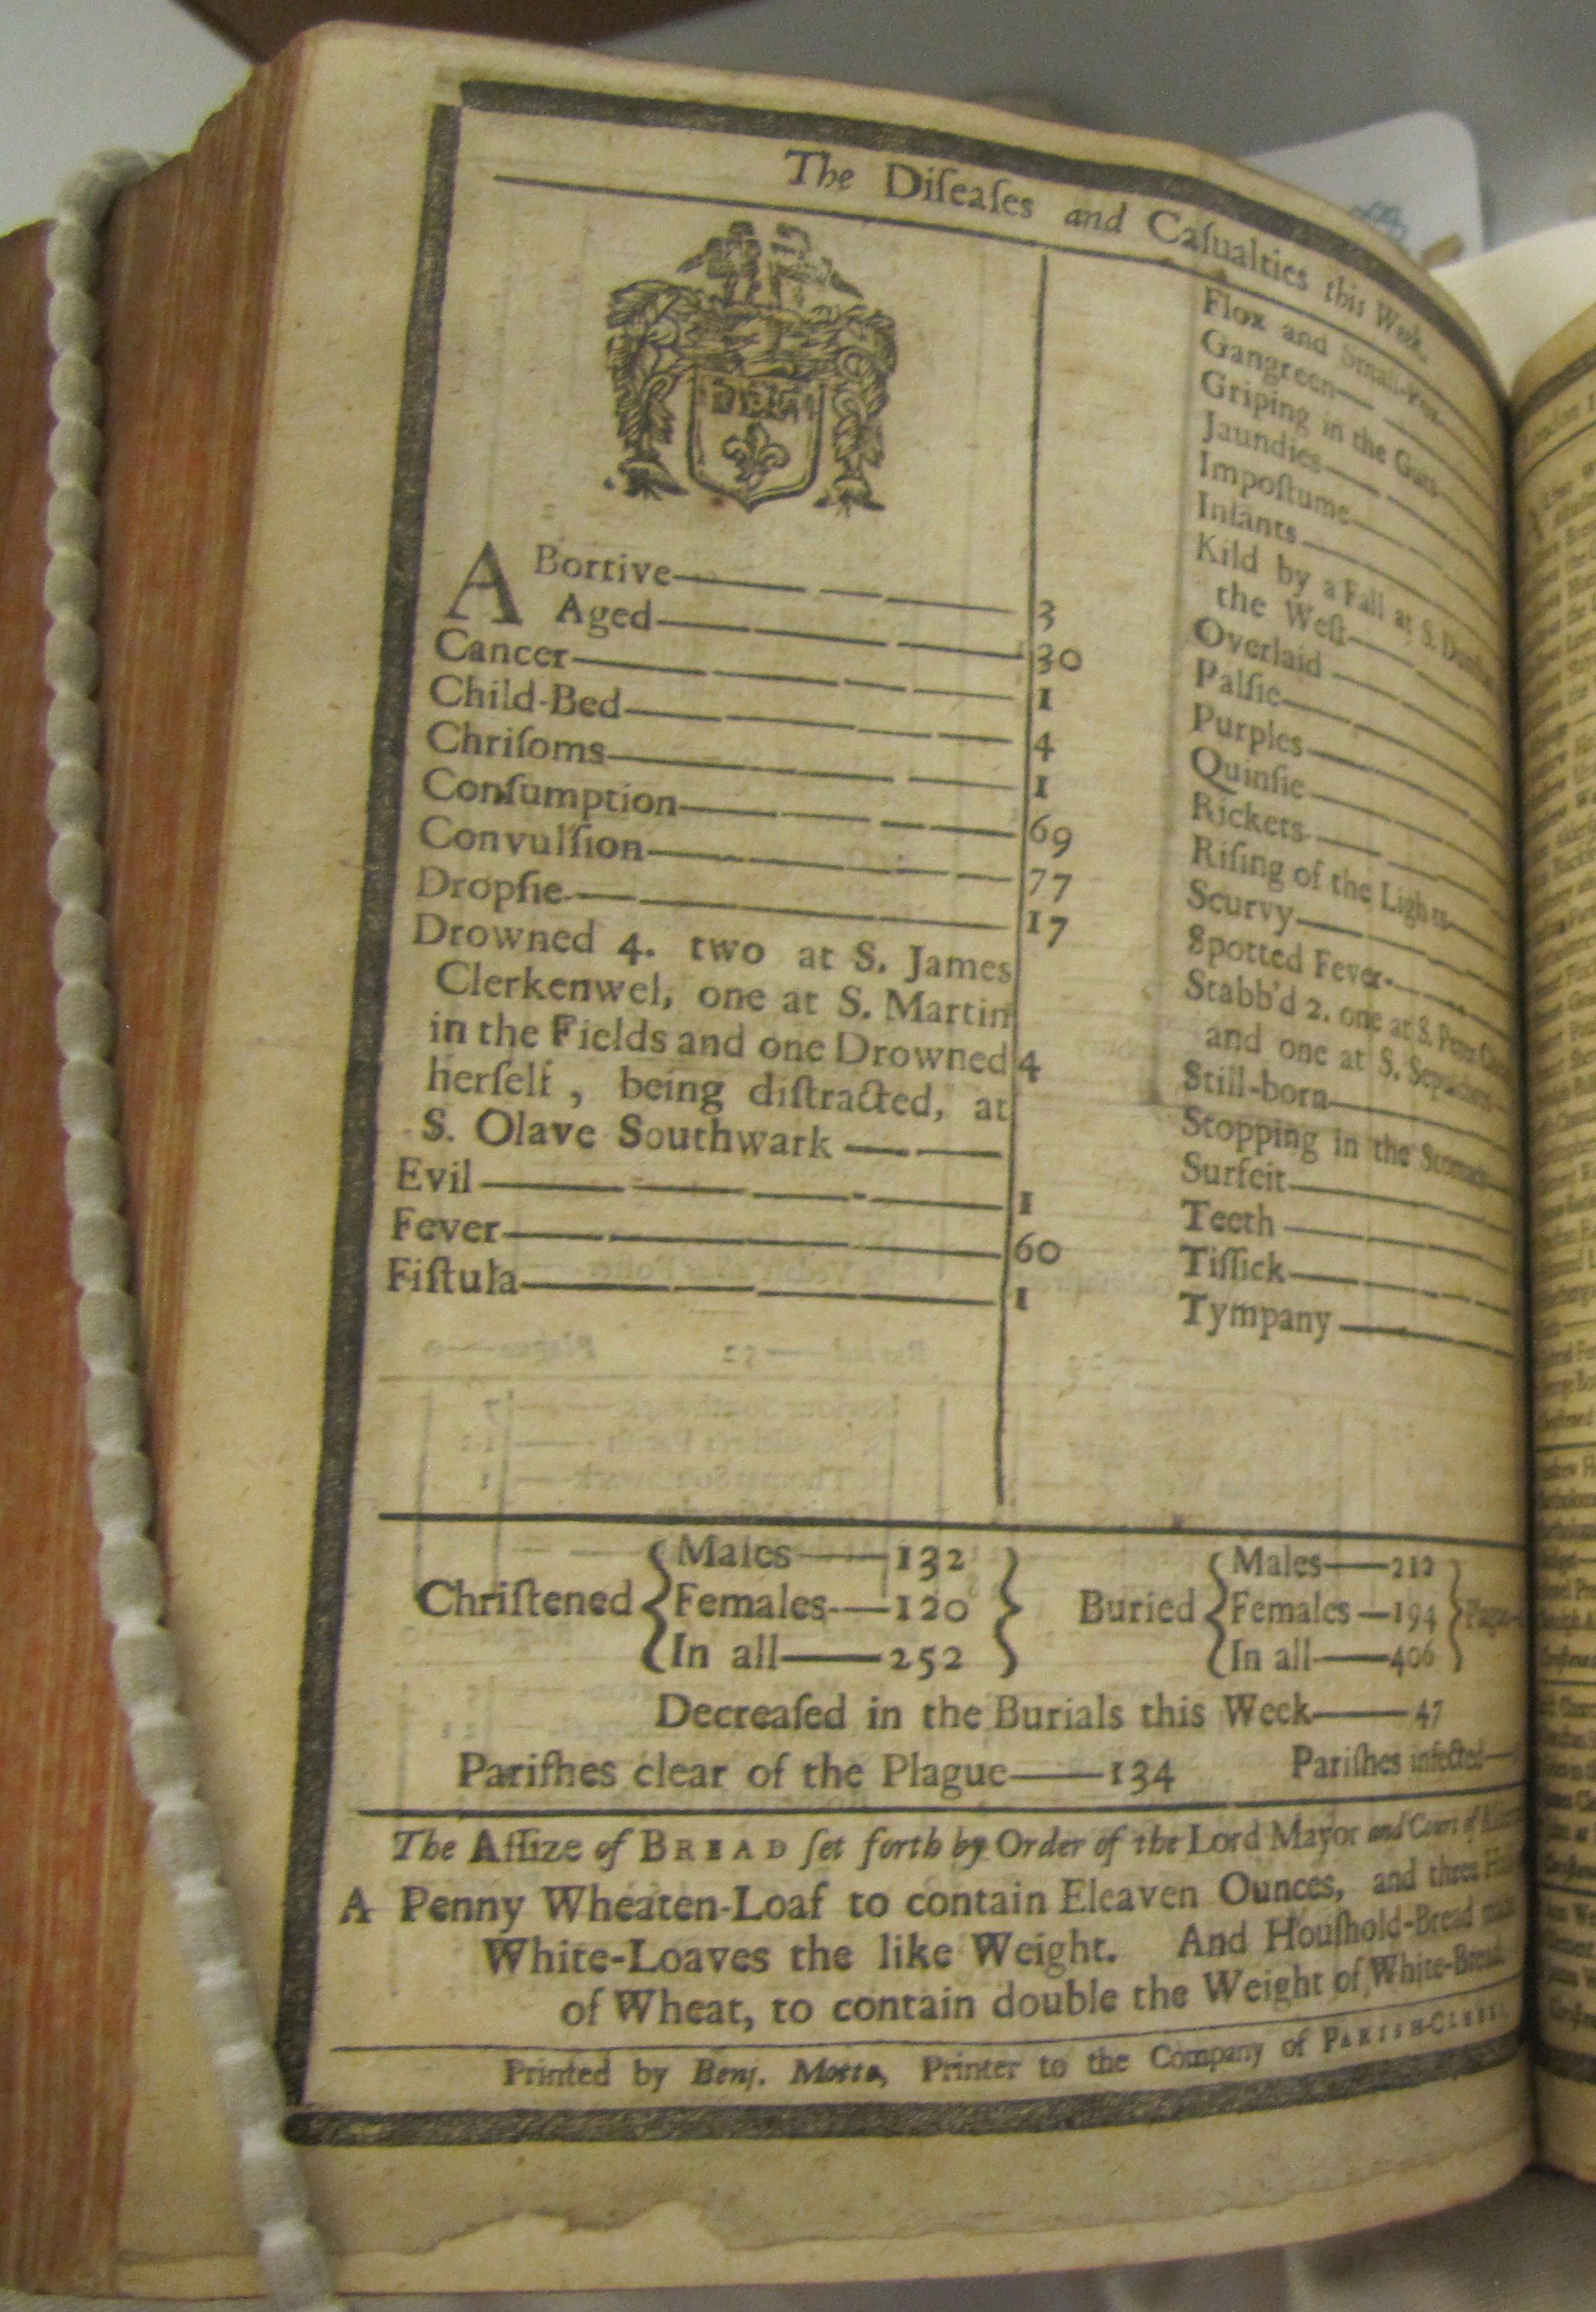 The Diſeaſes and Caſualties this Week.
ABortive 3
Aged 30
Cancer 1
Child-Bed 4
Chriſoms 1
Conſumption 69
Convulſion 77
Dropſie 17
Drowned 4. two at S. James
Clerkenwel, one at S. Martin
in the Fields and one Drowned 4
herſelf, being diſtracted, at
S. Olave Southwark
Evil 1
Fever 60
Fiſtula 1
Flox and Small-Pox
Gangreen
Griping in the Guts
Jaundies
Impoſtume
Infants
Kild by a Fall at S. Dunſtan
the Weſt
Overlaid
Palſie
Purples
Quinſie
Rickets
Riſing of the Lights
Scurvy
Spotted Fever
Stabb'd 2. one at S. Peter
and one at S. Sepulchers
Still-born
Stopping in the Stomach
Surfeit
Teeth
Tiſſick
Tympany
Chriſtened { Males—132 Females—120 In all—252 } Buried { Males—212 Females—194 In all—406 } Plague
Decreaſed in the Burials this Week—47
Pariſhes clear of the Plague—134 Pariſhes infected—
The Aſſize of BREAD ſet forth by Order of the Lord Mayor and Court of
A Penny Wheaten-Loaf to contain Eleaven Ounces, and three
White-Loaves the like Weight. And Houſhold-Bread
of Wheat, to contain double the Weight of White-Bread.
Printed by Benj. Motte, Printer to the Company of PARISH-CLERKS